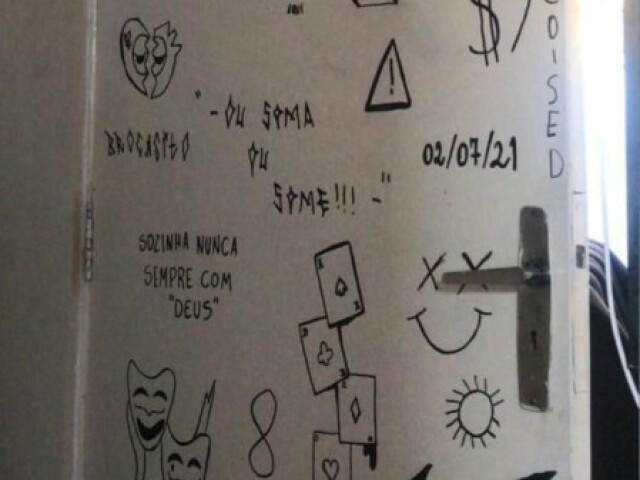 "-OU SOMA
OU
SOME!!! -"
02/07/21
SOZINHA NUNCA
SEMPRE COM
"DEUS"
OISED